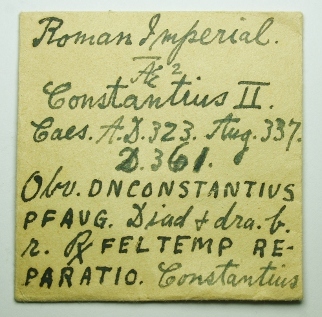 Roman Imperial.
Æ 2
Constantius II.
Caes. A.D. 323. Aug. 337.
D. 361.
Obv. DNCONSTANTIUS
PFAUG. Diad & dra. b.
r. ℞ FELTEMP RE-
PARATIO. Constantius